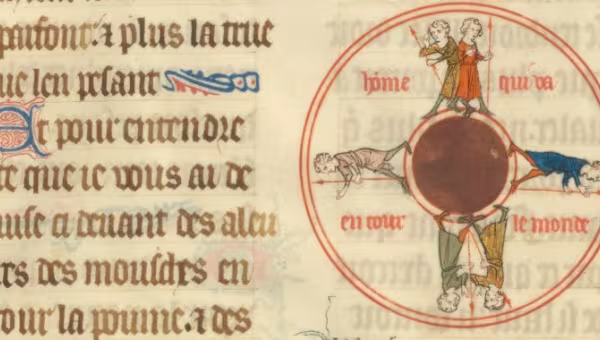 parfont. ⁊ plus la true
ue len pesant
Et pour entendre
ce que ie vous ai de
uise ci deuant des aleu
rs des mousches en
tour la poume. ⁊ des
home qui va
en tour le monde